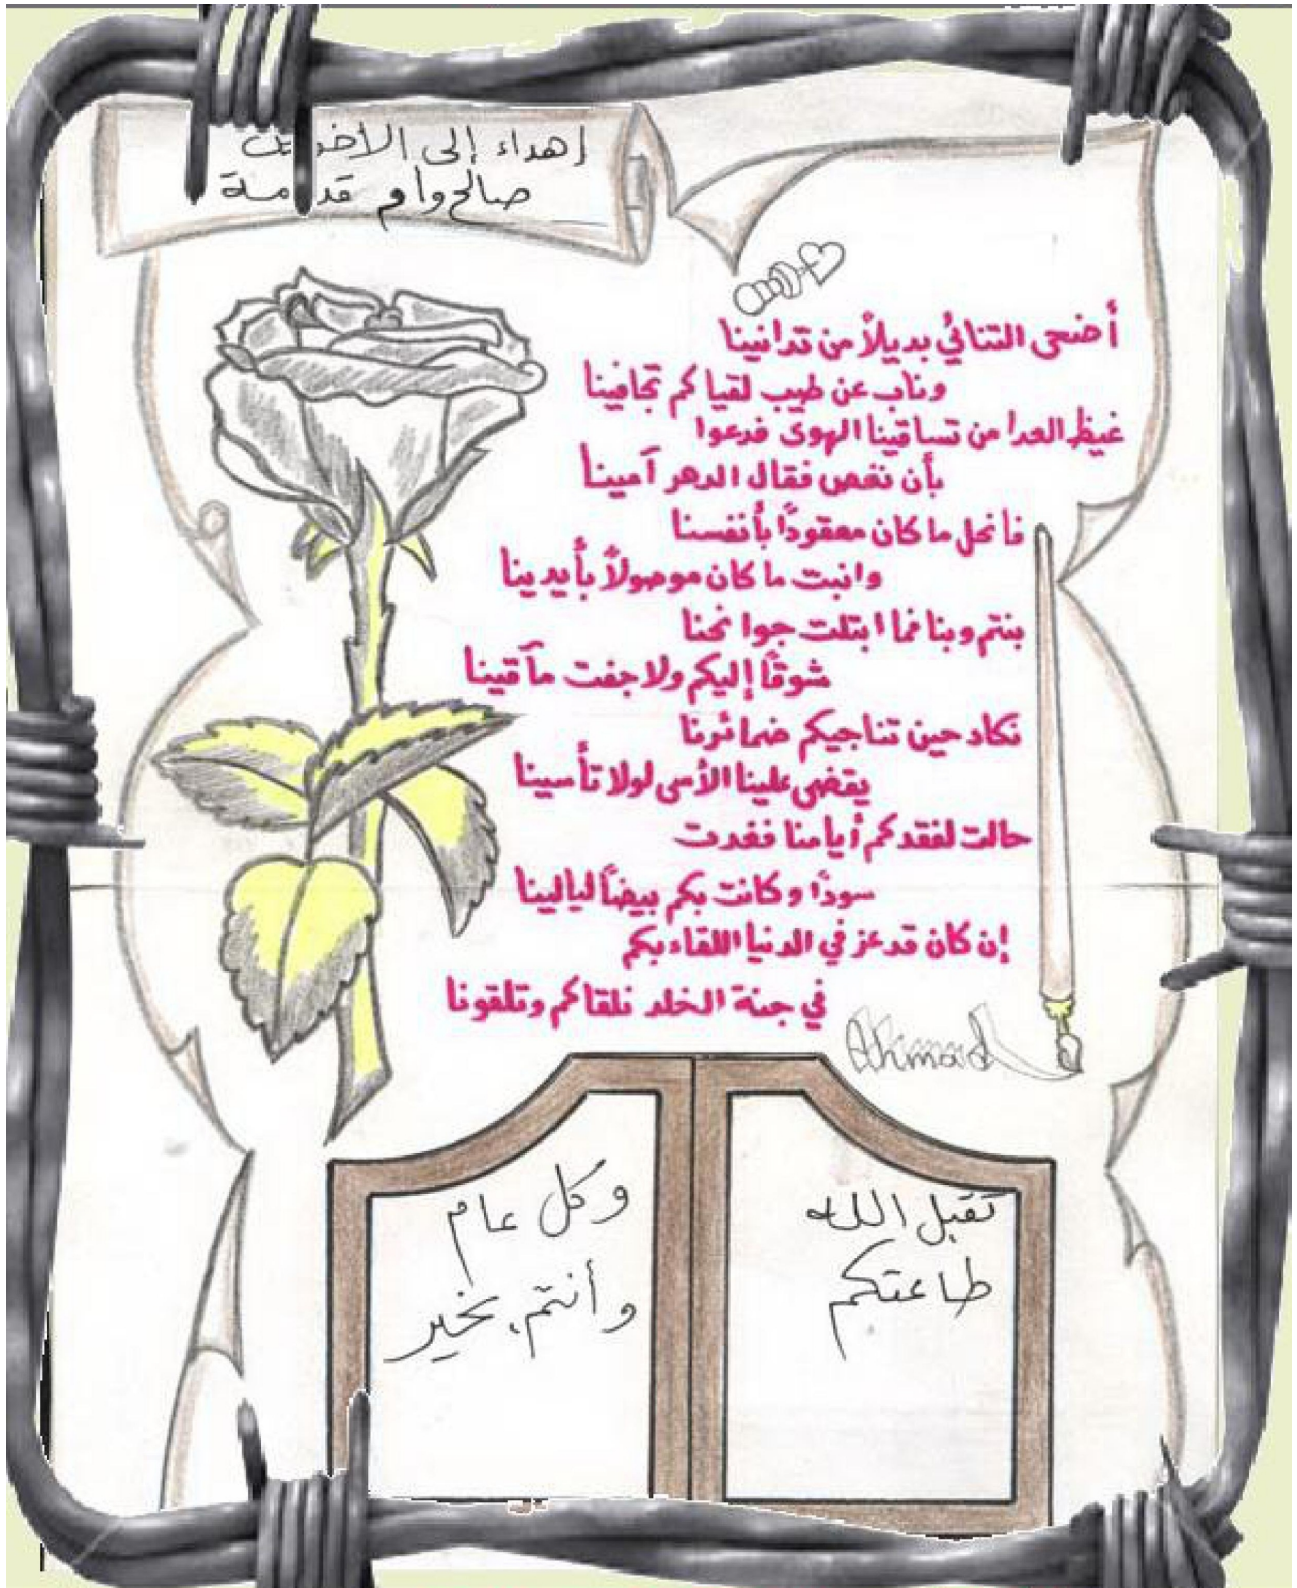 إهداء إلى الأخوين
صالح وأم قدامة
أضحى التنائي بديلاً من تدانينا
وناب عن طيب لقياكم تجافينا
غيظ العدا من تساقينا الهوى فدعوا
بأن نغص فقال الدهر آمينا
فانحل ما كان معقودًا بأنفسنا
وانبت ما كان موصولاً بأيدينا
بنتم وبنا فما ابتلت جوانحنا
شوقًا إليكم ولا جفت مآقينا
نكاد حين تناجيكم ضمائرنا
يقضي علينا الأسى لولا تأسينا
حالت لفقدكم أيامنا فغدت
سودًا وكانت بكم بيضًا ليالينا
إن كان قد عز في الدنيا اللقاء بكم
في جنة الخلد نلقاكم وتلقونا
Ahmad
تقبل الله
طاعتكم
وكل عام
وأنتم بخير